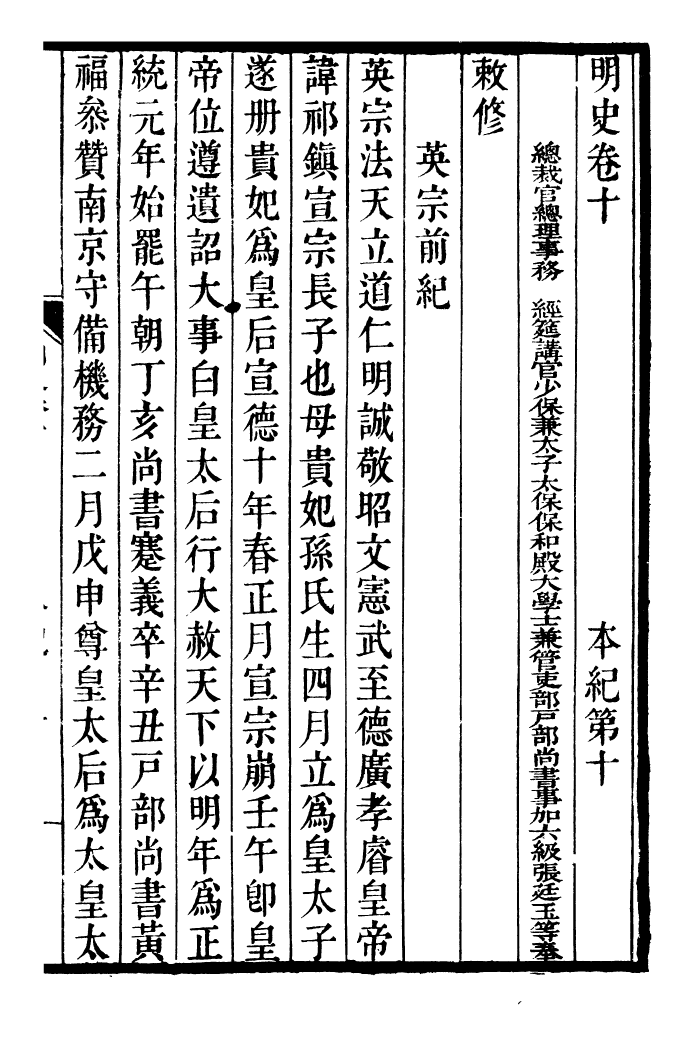 明史卷十　本紀第十
總裁官總理事務　經筵講官少保兼太子太保保和殿大學士兼管吏部戸部尚書事加六級張廷玉等奉
敕修
英宗前紀
英宗法天立道仁明誠敬昭文憲武至德廣孝睿皇帝
諱祁鎭宣宗長子也母貴妃孫氏生四月立爲皇太子
遂册貴妃爲皇后宣德十年春正月宣宗崩壬午卽皇
帝位遵遺詔大事白皇太后行大赦天下以明年爲正
統元年始罷午朝丁亥尚書蹇義卒辛丑戸部尚書黃
福叅贊南京守備機務二月戊申尊皇太后爲太皇太